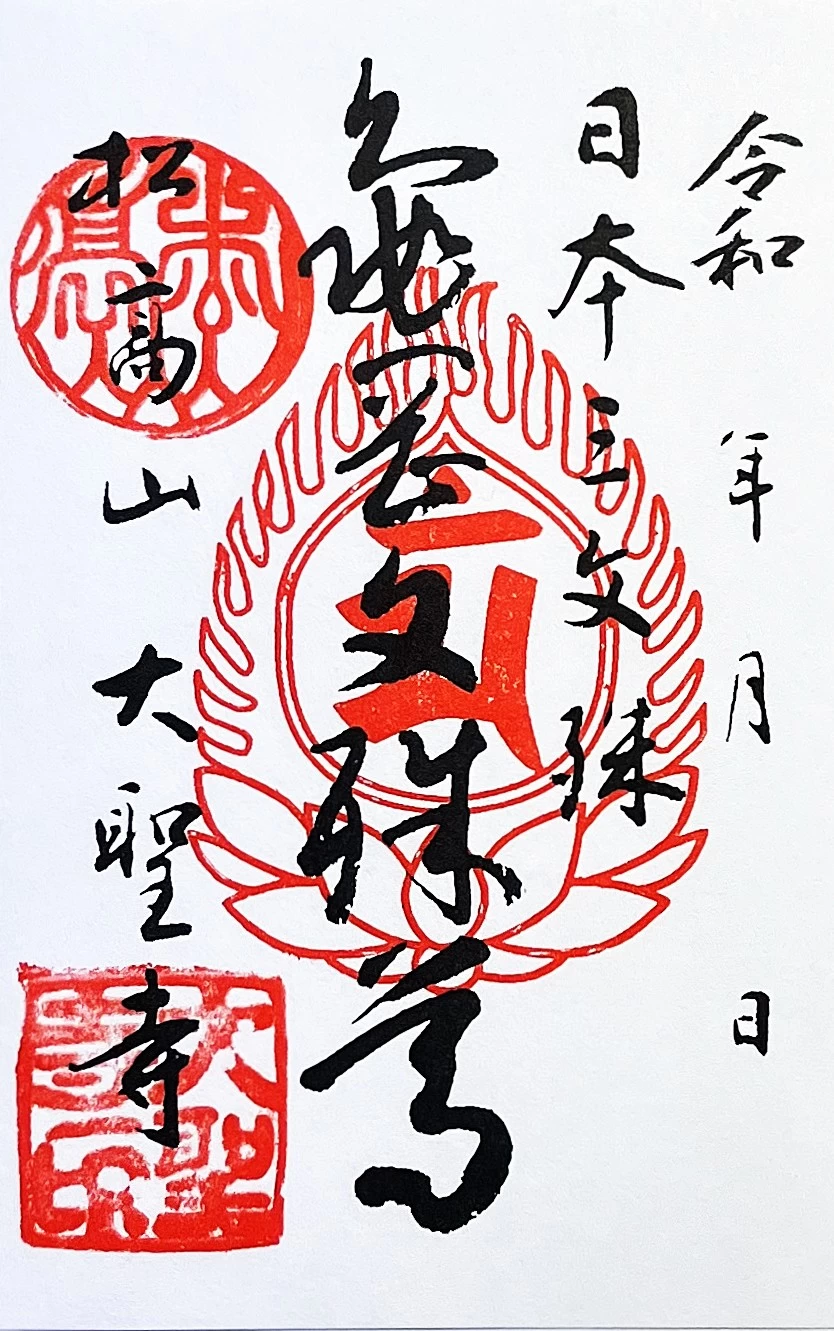 令和 年 月 日
日本三文殊
亀岡文殊尊
松高山大聖寺
大聖
寺印